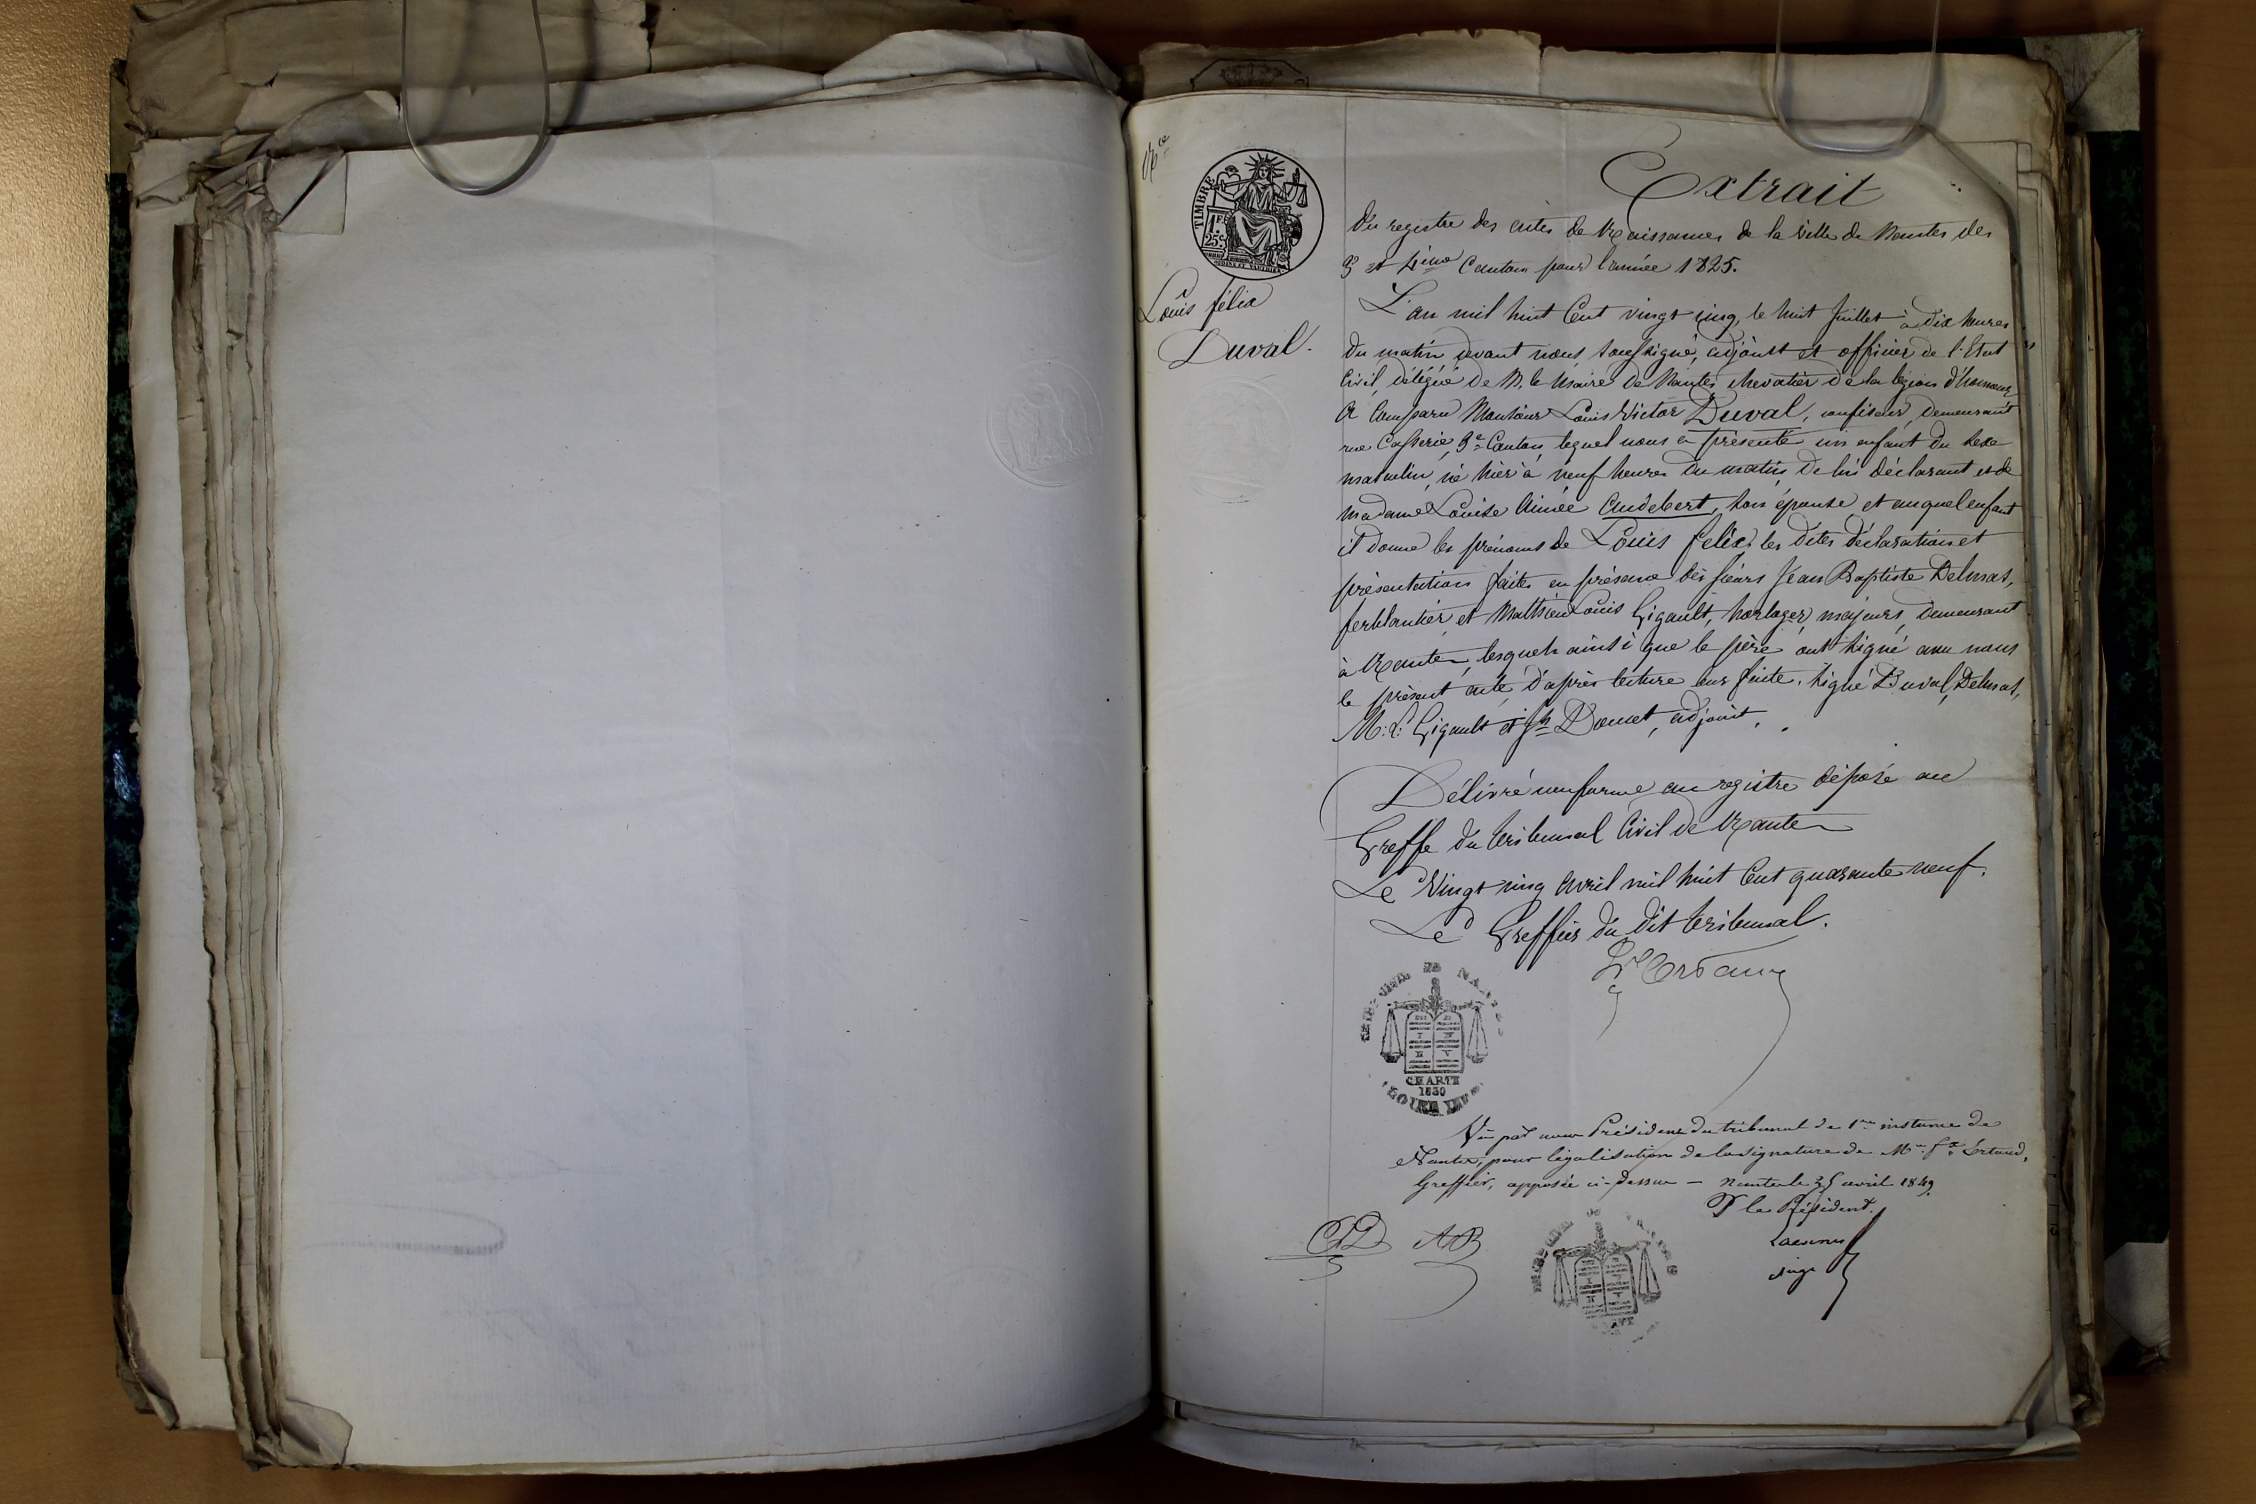 Nce
TIMBRE
1F.
25c.
Louis félix
Duval.
Extrait
Du registre des actes de Naissances de la Ville de Nantes des
3e et 4ème Canton pour l'année 1825.
L'an mil huit Cent vingt cinq, le huit Juillet à dix heures
du matin devant nous soussigné, adjoint et officier de l'Etat
Civil, délégué de M. le Maire de Nantes chevalier de la légion d'honneur
A Comparu Monsieur Louis Victor Duval, confiseur, demeurant
rue Casserie, 3e Canton, lequel nous a présenté un enfant du sexe
masculin, né hier à neuf heures du matin, de lui déclarant et de
madame Louise Aimée Audebert, son épouse et auquel enfant
il donne les prénoms de Louis felix, les dites déclaration et
présentation faites en présence des sieurs Jean Baptiste Delmas,
ferblantier et Mathieu Louis Gigault, horloger, majeurs, demeurant
à Nantes, lesquels ainsi que le père ont signé avec nous
le présent acte, d'après lecture eux faite. Signé Duval, Delmas,
M: L: Gigault et Jh Doucet, adjoint.
Délivré conforme au registre déposé au
Greffe du tribunal Civil de Nantes
Le Vingt cinq Avril mil huit Cent quarante neuf.
Le Greffier du dit tribunal.
CHARTE
1830
Vu par nous Président du tribunal de 1ere instance de
Nantes, pour légalisation de la signature de Me
Greffier, apposée ci-dessus — Nantes le 25 avril 1849.
P le Président.
juge